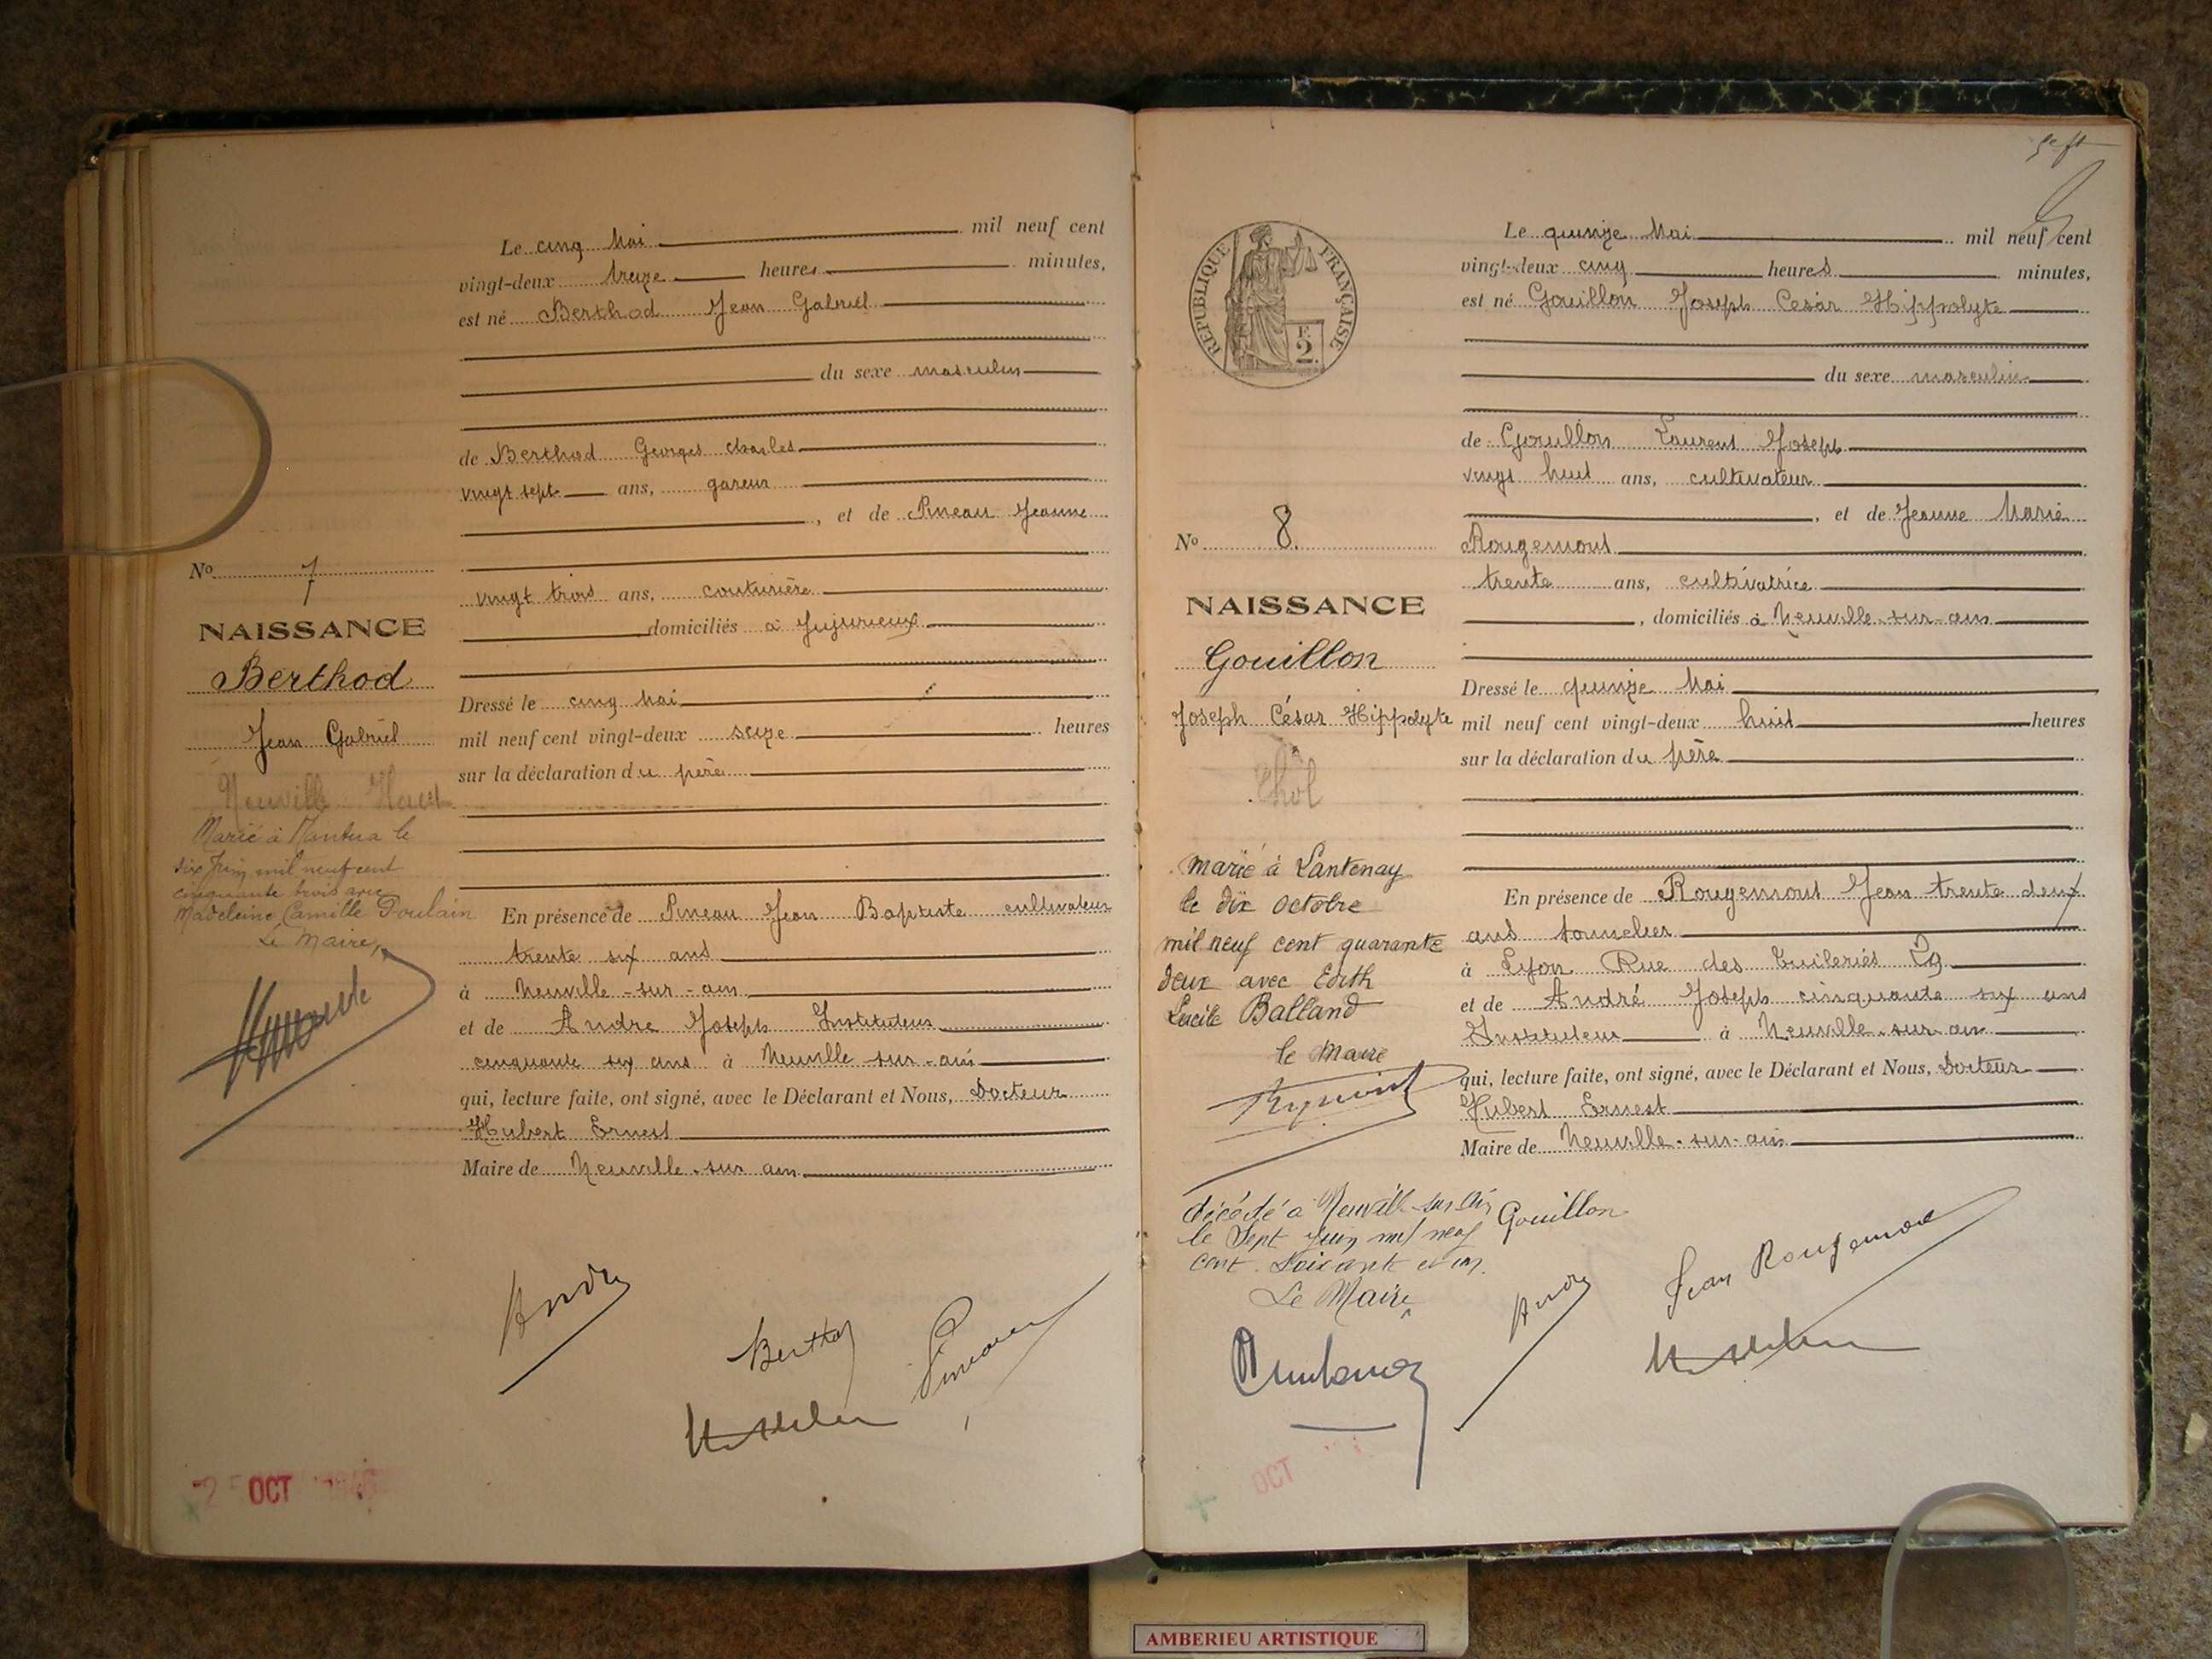 Le cinq Mai mil neuf cent
vingt-deux treize heures minutes,
est né Berthod Jean Gabriel
du sexe masculin
de Berthod Georges Charles
vingt sept ans, gareur
, et de Pineau Jeanne
vingt trois ans, couturière
domiciliés à Jujurieux
Dressé le cinq Mai
mil neuf cent vingt-deux seize heures
sur la déclaration du père
En présence de Pineau Jean Baptiste cultivateur
trente six ans
à Neuville-sur-ain
et de André Joseph Instituteur
cinquante six ans à Neuville-sur-ain
qui, lecture faite, ont signé, avec le Déclarant et Nous, Docteur
Hubert Ernest
Maire de Neuville-sur ain
No 7
NAISSANCE
Berthod
Jean Gabriel
Neuville Haut
Marié à Nantua le
six Juin mil neuf cent
cinquante trois avec
Madeleine Camille Poulain
Le Maire,
André
Berthod
Pineau
OCT
sept
RÉPUBLIQUE FRANÇAISE
F.
2
Le quinze Mai mil neuf cent
vingt-deux cinq heures minutes,
est né Gouillon Joseph César Hippolyte
du sexe masculin
de Gouillon Laurent Joseph
vingt huit ans, cultivateur
, et de Jeanne Marie
Rougemont
trente ans, cultivatrice
, domiciliés à Neuville-sur-ain
Dressé le quinze Mai
mil neuf cent vingt-deux huit heures
sur la déclaration du père
En présence de Rougemont Jean trente deux
ans tonnelier
à Lyon Rue des Tuileries 29
et de André Joseph cinquante six ans
Instituteur à Neuville-sur-ain
qui, lecture faite, ont signé, avec le Déclarant et Nous, Docteur
Hubert Ernest
Maire de Neuville-sur-ain
No 8.
NAISSANCE
Gouillon
Joseph César Hippolyte
Thol
marié à Lantenay
le dix octobre
mil neuf cent quarante
deux avec Edith
Lucile Balland
le Maire
décédé à Neuville sur Ain
le Sept Juin mil neuf
cent soixante et un.
Le Maire
Gouillon
André
Jean Rougemont
OCT
AMBERIEU ARTISTIQUE